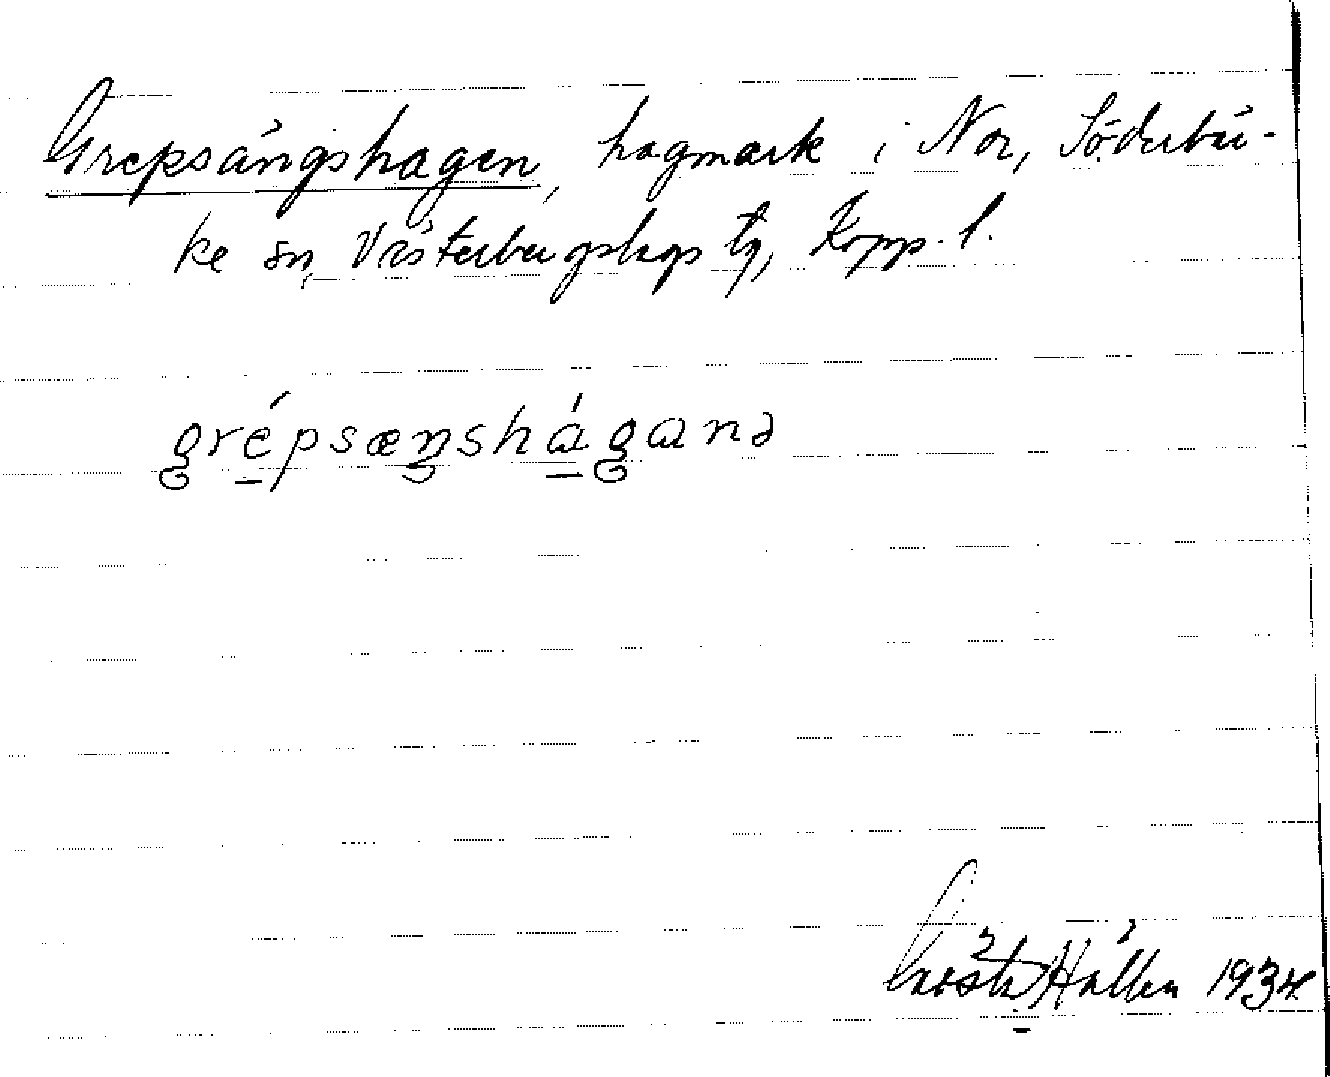 Grepsängshagen, hagmark i Nor, Söderbär-
ke sn, Västerbergslags tg, Kopp. l.
grépsæŋsháganə
Gösta Hallén 1934.